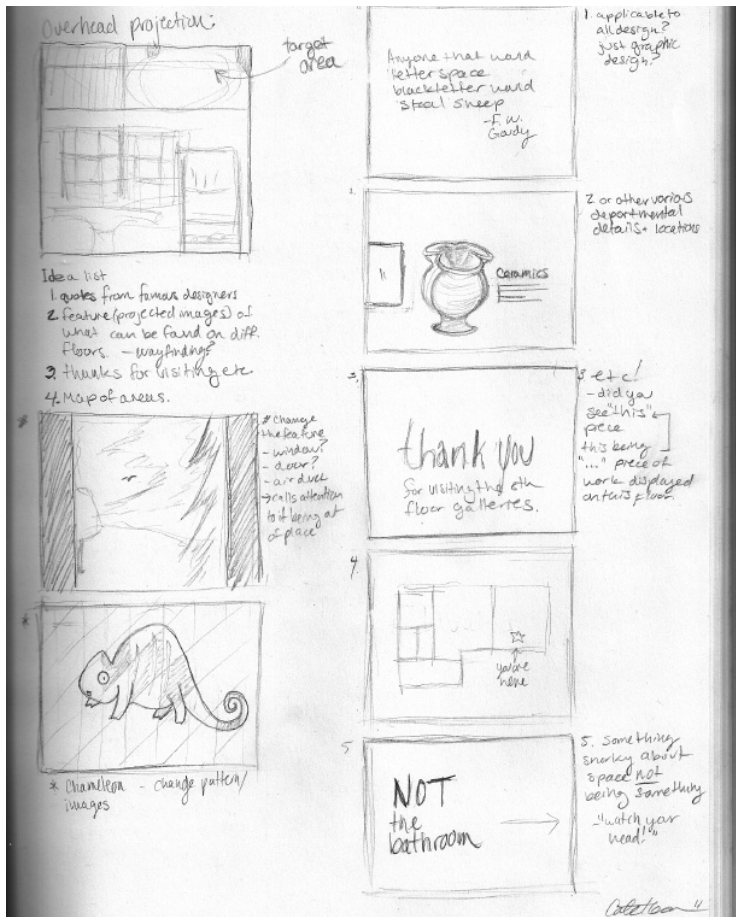 Overhead projection:
target
area
Idea list
1. quotes from famous designers
2. feature (projected images) of
what can be found on diff.
floors. - wayfinding?
3. thanks for visiting etc.
4. Map of areas.
*
* change
the feature
- window?
- door?
- air duct
→ calls attention
to it being out
of place
*
* Chameleon - change pattern/
images
Anyone that would
letterspace
blackletter would
steal sheep
- F. W.
Goudy
1. applicable to
all design?
just graphic
design?
Ceramics
2. or other various
departmental
details + locations
3.
thank you
for visiting the 8th
floor galleries.
3. etc!
- did you
see "this"
piece
this being
"..." piece of
work displayed
on this floor.
4.
you're
here
5
NOT
the
bathroom
5. something
snarky about
space not
being something
- "watch your
head!"